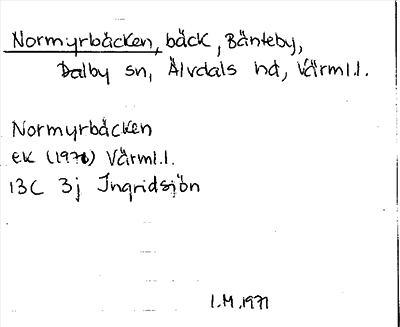 Normyrbäcken, bäck, Bänteby,
Dalby sn, Älvdals hd, Värml.l.
Normyrbäcken
ek (1971) Värml.l.
13C 3j Ingridsjön
I.M. 1971